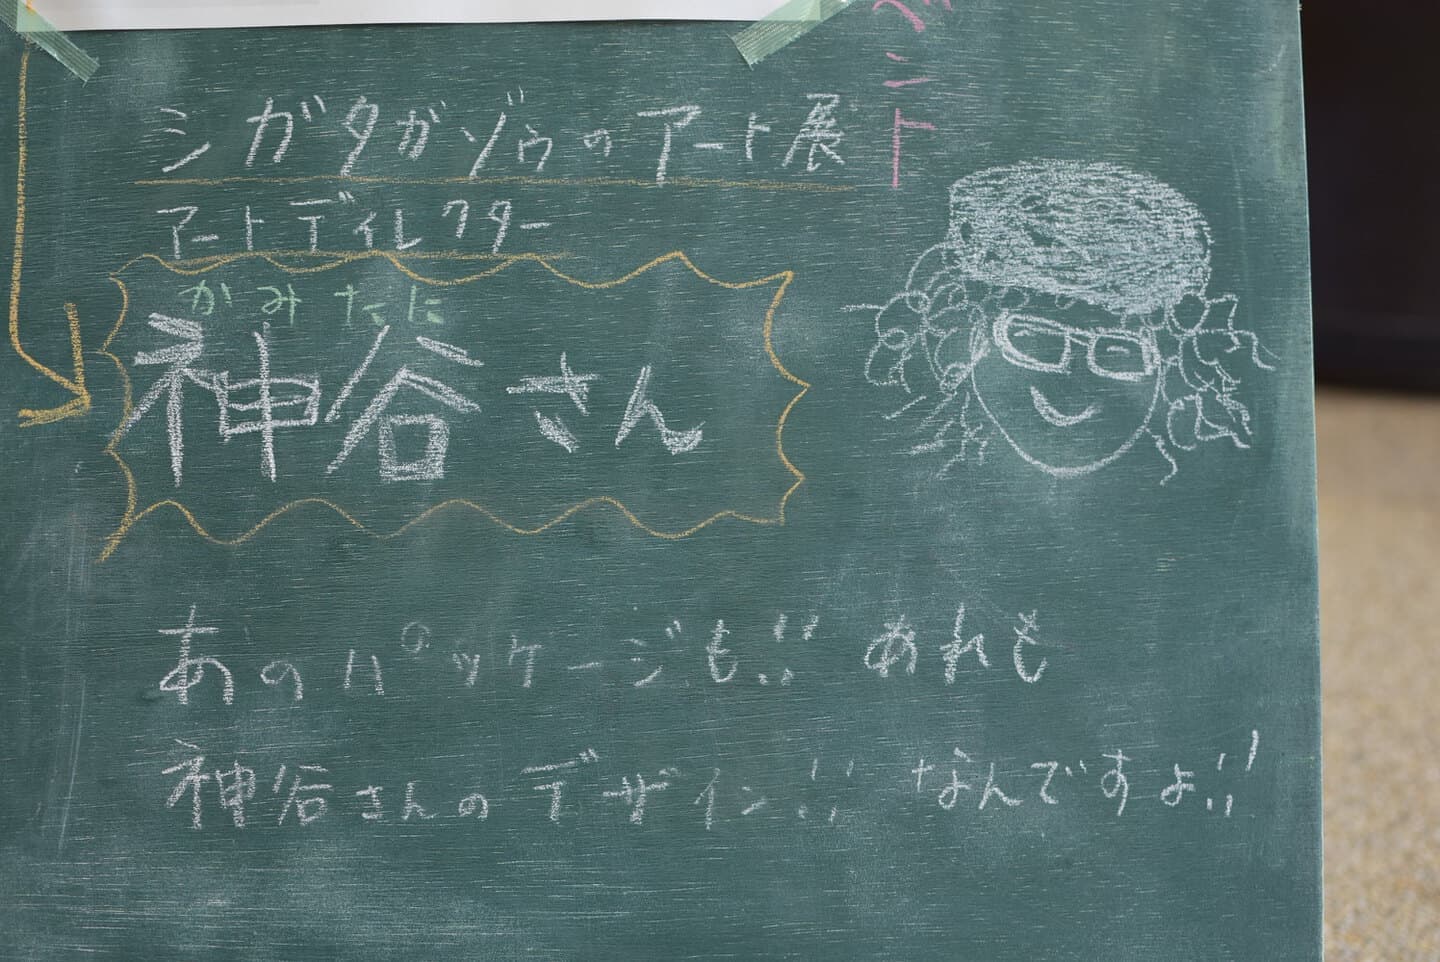 シガタガゾウのアート展
アートディレクター
かみたに
神谷さん
あのパッケージも!! あれも
神谷さんのデザイン!! なんですよ!!
ント